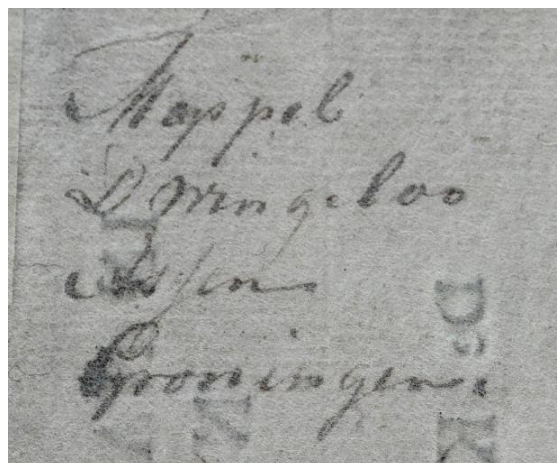 Meppel
Dwingeloo
Assen
Groningen.